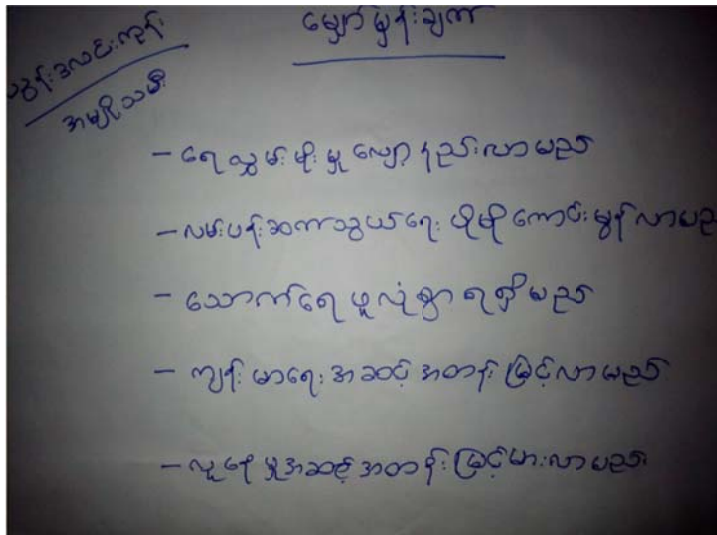 မျှော်မှန်းချက်
အမျိုးသမီး
- ရေလွှမ်းမိုးမှု လျော့နည်းလာမည်
- လမ်းပန်းဆက်သွယ်ရေး ပိုမိုကောင်းမွန်လာမည်
- သောက်ရေ ဖူလုံစွာ ရရှိမည်
- ကျန်းမာရေး အဆင့် အတန်း မြင့်လာမည်
- လူနေမှုအဆင့် အတန်း မြင့်မားလာမည်